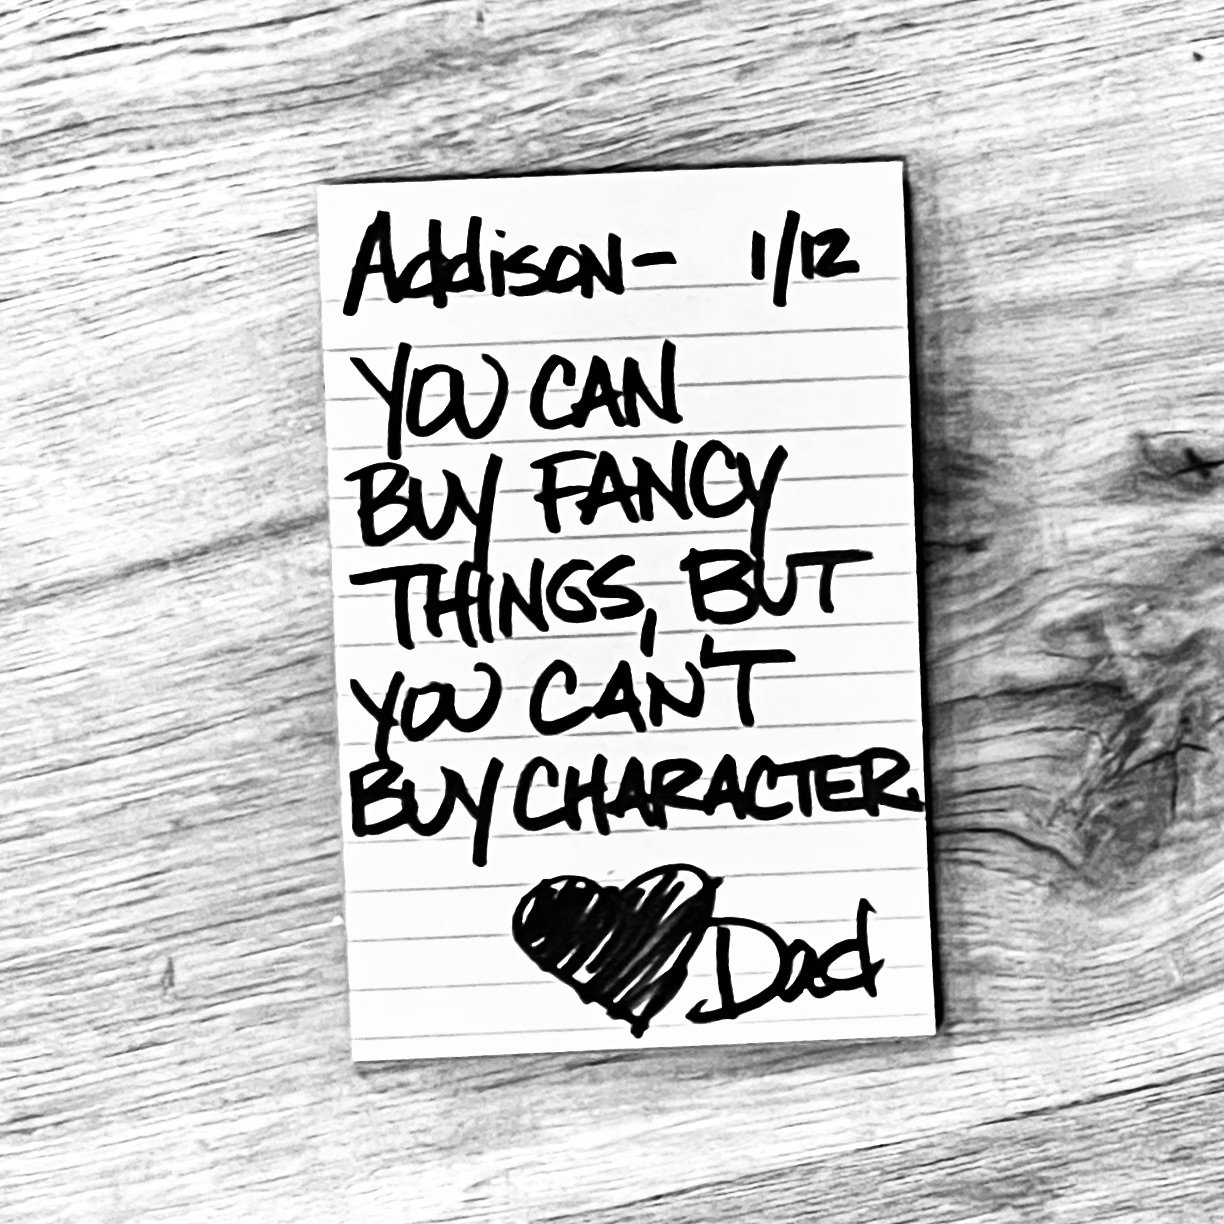 Addison- 1/12
YOU CAN
BUY FANCY
THINGS, BUT
YOU CAN'T
BUY CHARACTER.
Dad